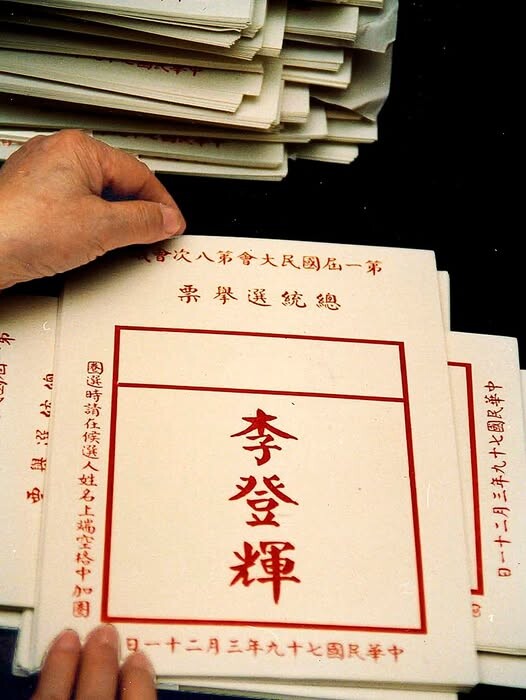 第一屆國民大會第八次會
總統選舉票
李登輝
圈選時請在候選人姓名上端空格中加圈
中華民國七十九年三月二十一日
中華民國七十九年三月二十一日